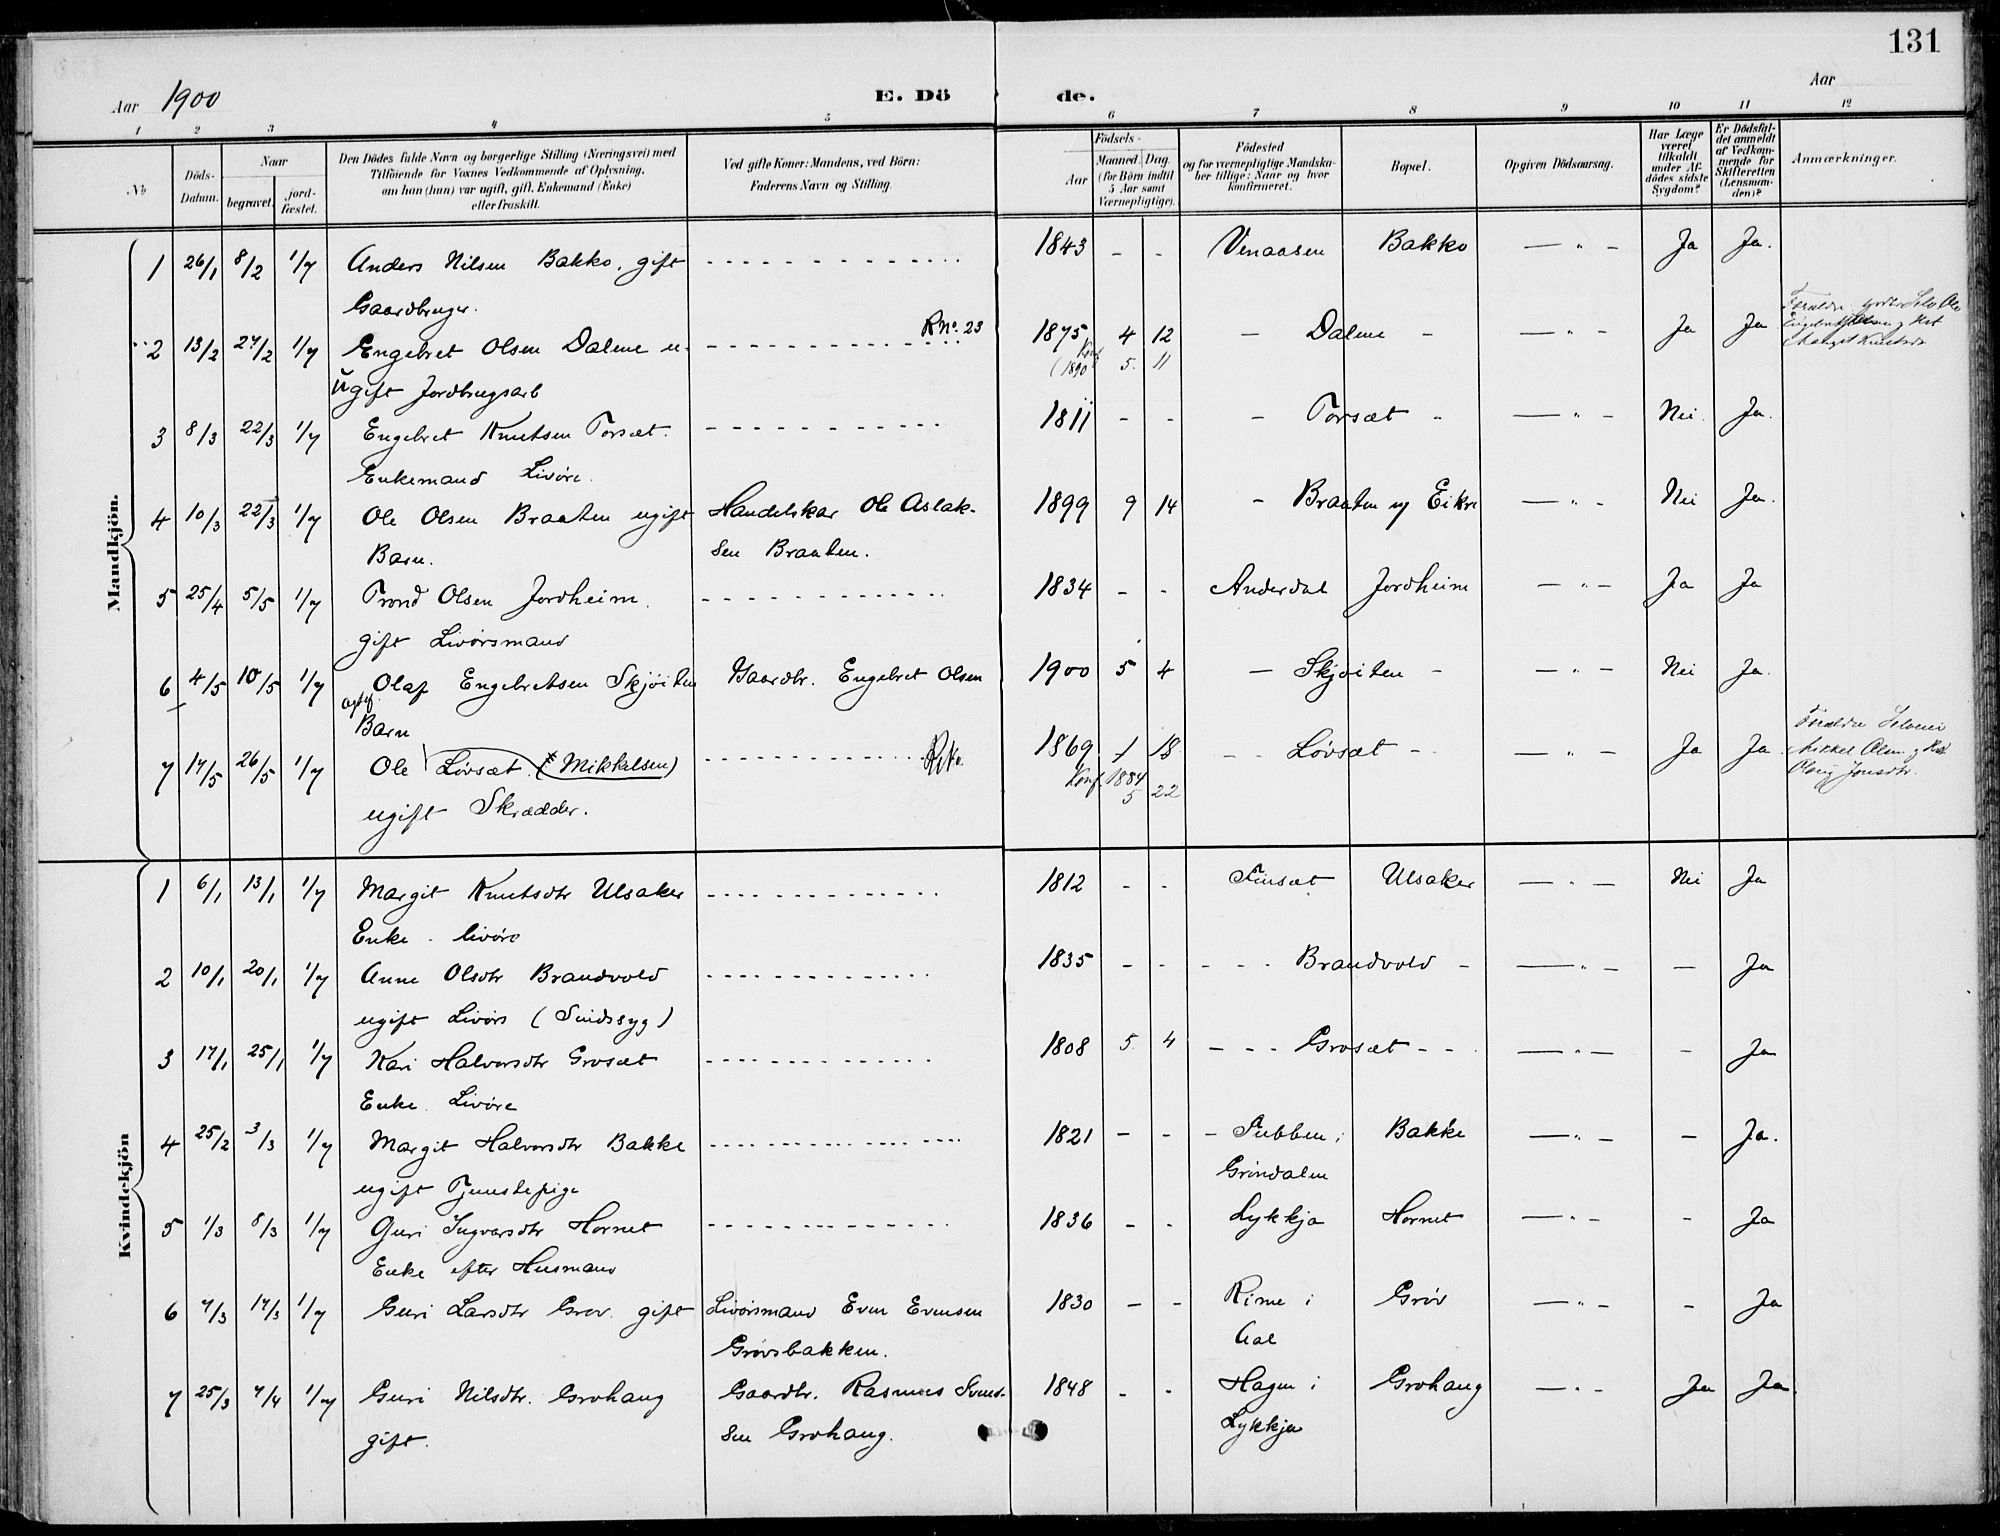 131
Aar 1900 E. Dö de. Aar
1 2 3 4 5 6 7 8 9 10 11 12
No
Döds-Datum.
Naar
begravet.
jord-fæstet.
Den Dödes fulde Navn og borgerlige Stilling (Næringsvei) med
Tilföiende for Voxnes Vedkommende af Oplysning,
om han (hun) var ugift, gift, Enkemand (Enke)
eller fraskilt.
Ved gifte Koner: Mandens, ved Börn:
Faderens Navn og Stilling.
Födsels-
Aar
Maaned. Dag.
(for Börn indtil
5 Aar samt
Værnepligtige).
Födested
og for værnepligtige Mandska-
ber tillige: Naar og hvor
konfirmeret.
Bopæl.
Opgiven Dödsaarsag.
Har Læge
været
tilkaldt
under Af-
dödes sidste
Sygdom?
Er Dödsfal-
det anmeldt
af Vedkom-
mende for
Skifteretten
(Lensman-
den)?
Anmærkninger.
Mandkjön.
1 26/1 8/2 1/7 Anders Nilsen Bakko, gift - - - 1843 - - Venaasen Bakko — " — Ja Ja.
Gaardbruger.
2 13/2 27/2 1/7 Engebret Olsen Dalene u- - - - R No. 23 1875 4 12 - Dalene - — " — Ja Ja Forældre Ole
ugift Jordbrugsarb (Konf. 1890 5. 11
3 8/3 22/3 1/7 Engebret Knutsen Torsæt. - - - 1811 - - - Torsæt - — " — Nei. Ja.
Enkemand Livöre.
4 10/3 22/3 1/7 Ole Olsen Braaten ugift Handelskar Ole Aslak- 1899 9 14 - Braaten og Eikre — " — Nei Ja.
Barn. sen Braaten.
5 25/4 5/5 1/7 Trond Olsen Jordheim. - - - 1834 - - Anderdal Jordheim — " — Ja Ja
gift Livörsmand
6 4/5 10/5 1/7 Olaf Engebretsen Skjöiten Gaardbr. Engebret Olsen 1900 5 4 - Skjöiten - — " — Nei Ja.
Barn
7 17/5 26/5 1/7 Ole Lövsæt (Mikkelsen) - - - 1869 1 18 - - Lövsæt - — " — Ja Ja Forældre
ugift Skrædder. Konf. 1884 5 22 Mikkel Olsen
Jonsdtr.
Kvindekjön
1 6/1 13/1 1/7 Margit Knutsdtr Ulsaker - - - 1812 - - Finsæt Ulsaker — " — Nei Ja
Enke. livöre
2 10/1 20/1 1/7 Anne Olsdtr Brandvold - - - 1835 - - - - - Brandvold - — " — — Ja
ugift Livörs (Sindssyg)
3 17/1 25/1 1/7 Kari Halvorsdtr Grosæt - - - 1808 5. 4 - - - Grosæt - - — " — - Ja
Enke. Livöre
4 25/2 3/3 1/7 Margit Halvorsdtr Bakke - - - 1821 - - - Stubben i Bakke — " — - Ja.
ugift Tjenstepige Gröndalen
5 1/3 8/3 1/7 Guri Ingvarsdtr Hornet - - - 1836 - - Lykkja Hornet — " — - Ja
Enke efter Husmand
6 7/3 17/3 1/7 Guri Larsdtr Gröv. gift Livörsmand Even Evensen 1830 - - Rime i Gröv — " — - Ja
Grövsbakken. Aal
7 25/3 7/4 1/7 Guri Nilsdtr. Grohaug Gaardbr. Rasmus Svend- 1848 - - Hagen i Grohaug — " — Ja Ja.
gift. sen Grohaug. Lykkja